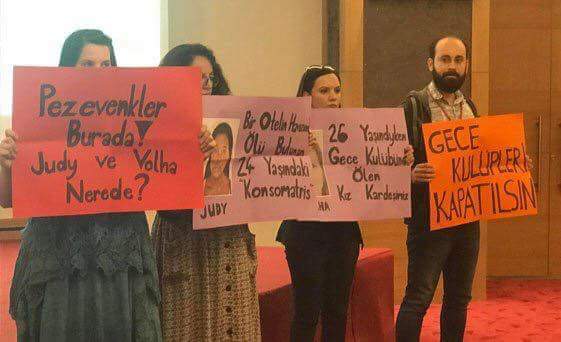 Pezevenkler
Burada!
Judy ve Volha
Nerede?
Bir Otelin
Ölü Bulunan
24 Yaşındaki
"Konsomatris"
JUDY
26 Yaşındyken
Gece Kulübünde
Ölen
Kız Kardeşimiz
HA
GECE
KULÜPLERİ
KAPATILSIN